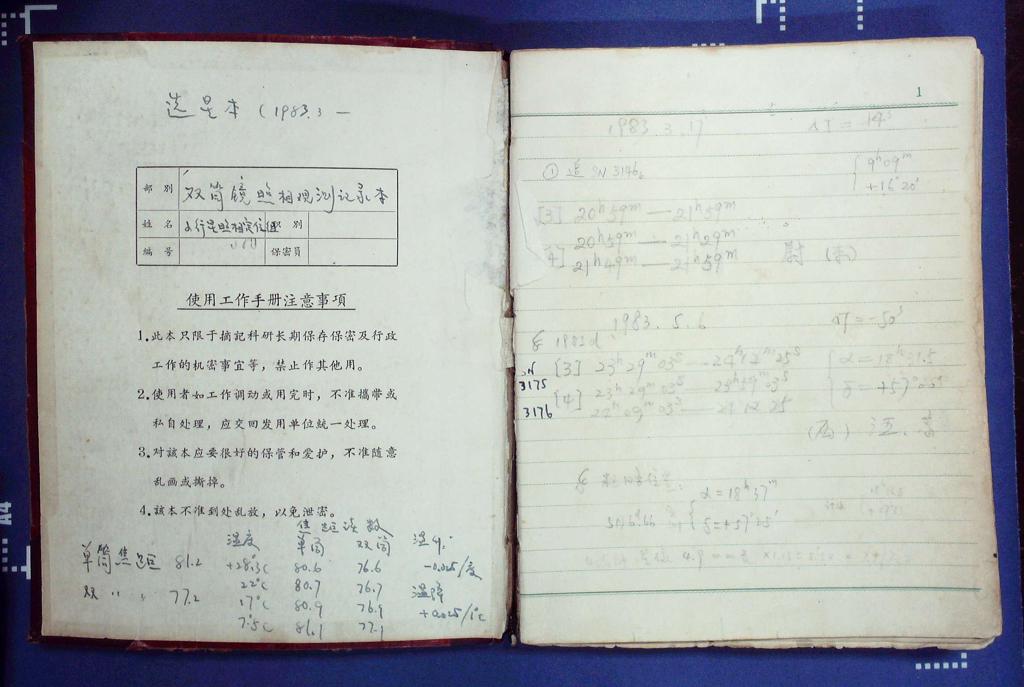 选星本 (1983.3 —
部別 双筒镜照相观测记录本
姓名 小行星照相定位组 別
編号 保密員
使用工作手册注意事項
1.此本只限于摘記科研长期保存保密及行政
工作的机密事宜等，禁止作其他用。
2.使用者如工作调动或用完时，不准攜带或
私自处理，应交回发用单位統一处理。
3.对該本应要很好的保管和爱护，不准随意
乱画或撕掉。
4.該本不准到处乱放，以免泄密。
焦距读数
温度 单筒 双筒 温升:
单筒焦距 81.2 +28.3℃ 80.6 76.6 -0.025/度
22℃ 80.7 76.7 温降
双 〃 〃 77.2 17℃ 80.9 76.9 +0.025/1℃
7.5℃ 81.1 77.1
1
1983.3.17 ΔT = 14ˢ
① 追 SN 3146. 9ʰ09ᵐ
+16°20′
[3] 20ʰ59ᵐ — 21ʰ59ᵐ
[4] 20ʰ59ᵐ — 21ʰ29ᵐ
21ʰ49ᵐ — 21ʰ59ᵐ
1983.5.6 ΔT = -50ˢ
1983d
SN [3] 23ʰ29ᵐ03ˢ — 24ʰ12ᵐ25ˢ α = 18ʰ31.5
3175 [4] 23ʰ29ᵐ03ˢ — 23ʰ59ᵐ03ˢ
3176 24ʰ09ᵐ03ˢ
α = 18ʰ37ᵐ
δ = +57°25′